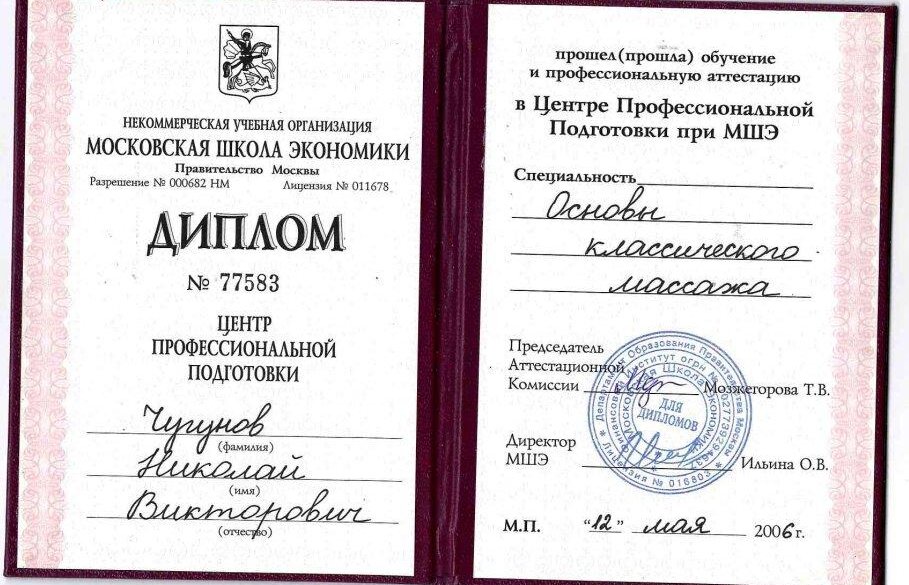 НЕКОММЕРЧЕСКАЯ УЧЕБНАЯ ОРГАНИЗАЦИЯ
МОСКОВСКАЯ ШКОЛА ЭКОНОМИКИ
Правительство Москвы
Разрешение № 000682 НМ Лицензия № 011678
ДИПЛОМ
№ 77583
ЦЕНТР
ПРОФЕССИОНАЛЬНОЙ
ПОДГОТОВКИ
Чугунов
(фамилия)
Николай
(имя)
Викторович
(отчество)
прошел(прошла) обучение
и профессиональную аттестацию
в Центре Профессиональной
Подготовки при МШЭ
Специальность
Основы
классического
массажа
Председатель
Аттестационной
Комиссии Мозжегорова Т.В.
Директор
МШЭ Ильина О.В.
М.П. "12" мая 2006 г.
Департамент Образования Правительства Москвы
Лицензия № 016803
Московская Школа Экономики
ДЛЯ
ДИПЛОМОВ